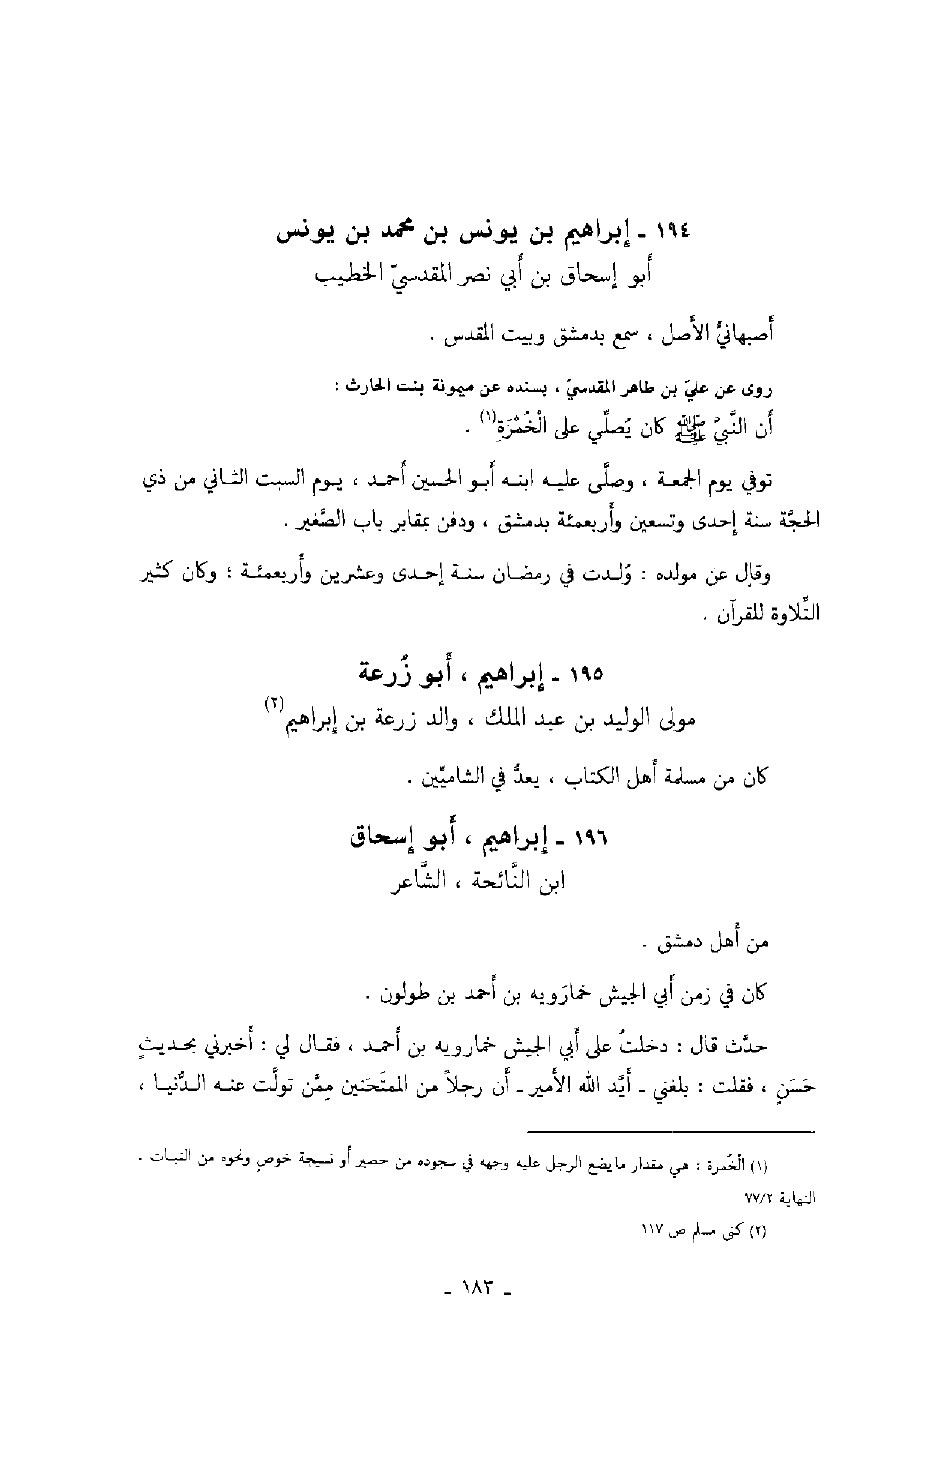 ١٩٤ ـ إبراهيم بن يونس بن محمد بن يونس
أبو إسحاق بن أبي نصر المقدسيّ الخطيب
أصبهانيُّ الأصل ، سمع بدمشق وبيت المقدس .
روى عن عليّ بن طاهر المقدسيّ ، بسنده عن ميمونة بنت الحارث :
أن النَّبيَّ ﷺ كان يُصلِّي على الْخُمْرَةِ(١) .
توفي يوم الجمعـة ، وصلَّى عليـه ابنـه أبـو الحسين أحمـد ، يـوم السبت الثـاني من ذي
الحجَّة سنة إحدى وتسعين وأربعمئة بدمشق ، ودفن بمقابر باب الصَّغير .
وقال عن مولده : وُلـدت في رمضـان سنـة إحـدى وعشرين وأربعمئـة ؛ وكان كثير
التِّلاوة للقرآن .
١٩٥ ـ إبراهيم ، أبو زُرعة
مولى الوليد بن عبد الملك ، والد زرعة بن إبراهيم(٢)
كان من مسلمة أهل الكتاب ، يعدُّ في الشاميِّين .
١٩٦ ـ إبراهيم ، أبو إسحاق
ابن النَّائحة ، الشَّاعر
من أهل دمشق .
كان في زمن أبي الجيش خمارَويه بن أحمد بن طولون .
حدَّث قال : دخلتُ على أبي الجيش خمارويه بن أحمـد ، فقـال لي : أخبرني بحـديثٍ
حَسَنٍ ، فقلت : بلغني ـ أيَّد الله الأمير ـ أن رجلاً من الممتَحَنين مِمَّن تولَّت عنـه الـدُّنيـا ،
(١) الخُمرة : هي مقدار ما يضع الرجل عليه وجهه في سجوده من حصير أو نسيجة خوصٍ ونحوه من النبـات .
النهاية ٧٧/٢
(٢) كنى مسلم ص ١١٧
ـ ١٨٣ ـ